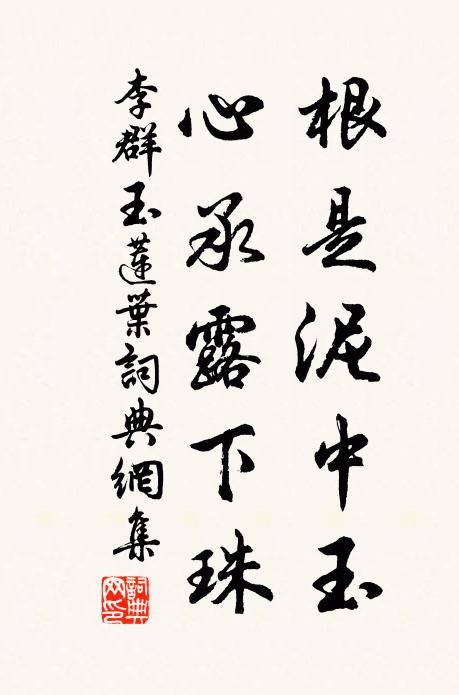 根是泥中玉
心承露下珠
李群玉蓮葉詞典網集
詞典網印